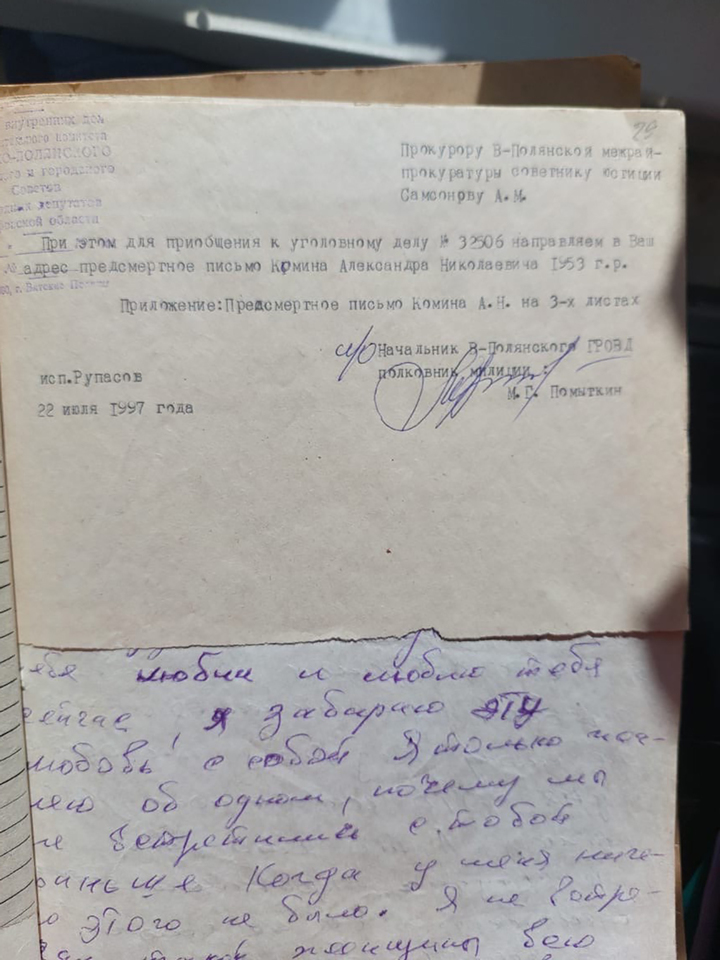 29
внутренних дел
комитета
О-ПОЛЯНСКОГО
и городского
Совета
депутатов
области
г. Вятские Поляны
Прокурору В-Полянской межрай-
прокуратуры советнику юстиции
Самсонову А.М.
При этом для приобщения к уголовному делу № 32506 направляем в Ваш
адрес предсмертное письмо Комина Александра Николаевича 1953 г.р.
Приложение:Предсмертное письмо Комина А.Н. на 3-х листах
Начальник В-Полянского ГРОВД
полковник милиции
М.Г. Помыткин
исп.Рупасов
22 июля 1997 года
любил и люблю тебя
сейчас, я забираю эту
любовь с собой Я только
об одном, почему мы
не встретились с тобой
раньше Когда у меня ниче-
го этого не было. Я не встре-
женщины всю